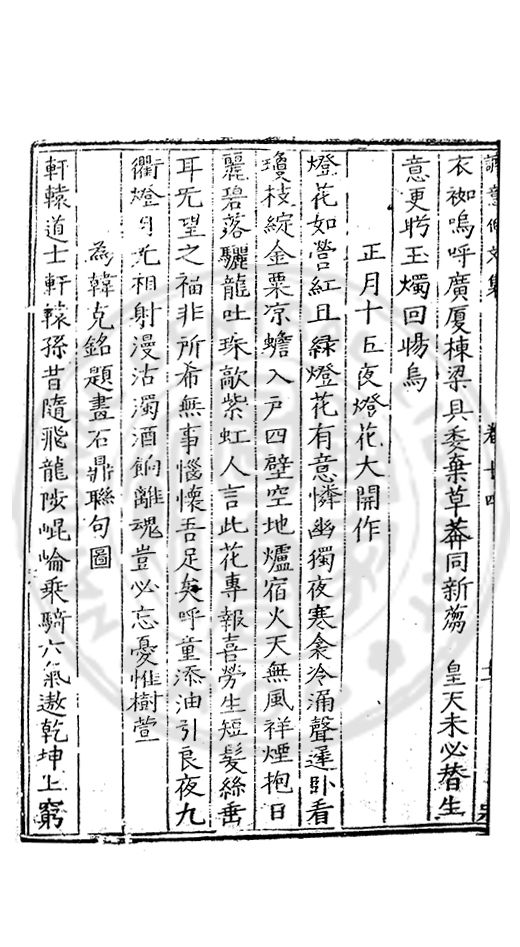 誠意伯文集　卷十四　十
衣袽嗚呼廣厦棟梁具委棄草莽同新蒭　皇天未必瞀生
意更聘玉燭回暘烏
正月十五夜燈花大開作
燈花如營紅且綠燈花有意憐幽獨夜寒衾冷涌聲遲卧看
瓊枝綻金粟凉蟾入戸四壁空地爐宿火天無風祥煙抱日
麗碧落驪龍吐珠歊紫虹人言此花專報喜勞生短髮絲垂
耳旡望之福非所希無事惱懷吾足矣呼童添油引良夜九
衢燈月光相射漫沽濁酒餉離魂豈必忘憂惟樹萱
為韓克銘題畫石鼎聯句圖
軒轅道士軒轅孫昔隨飛龍陟崐崘乘騎六氣遨乾坤上窮